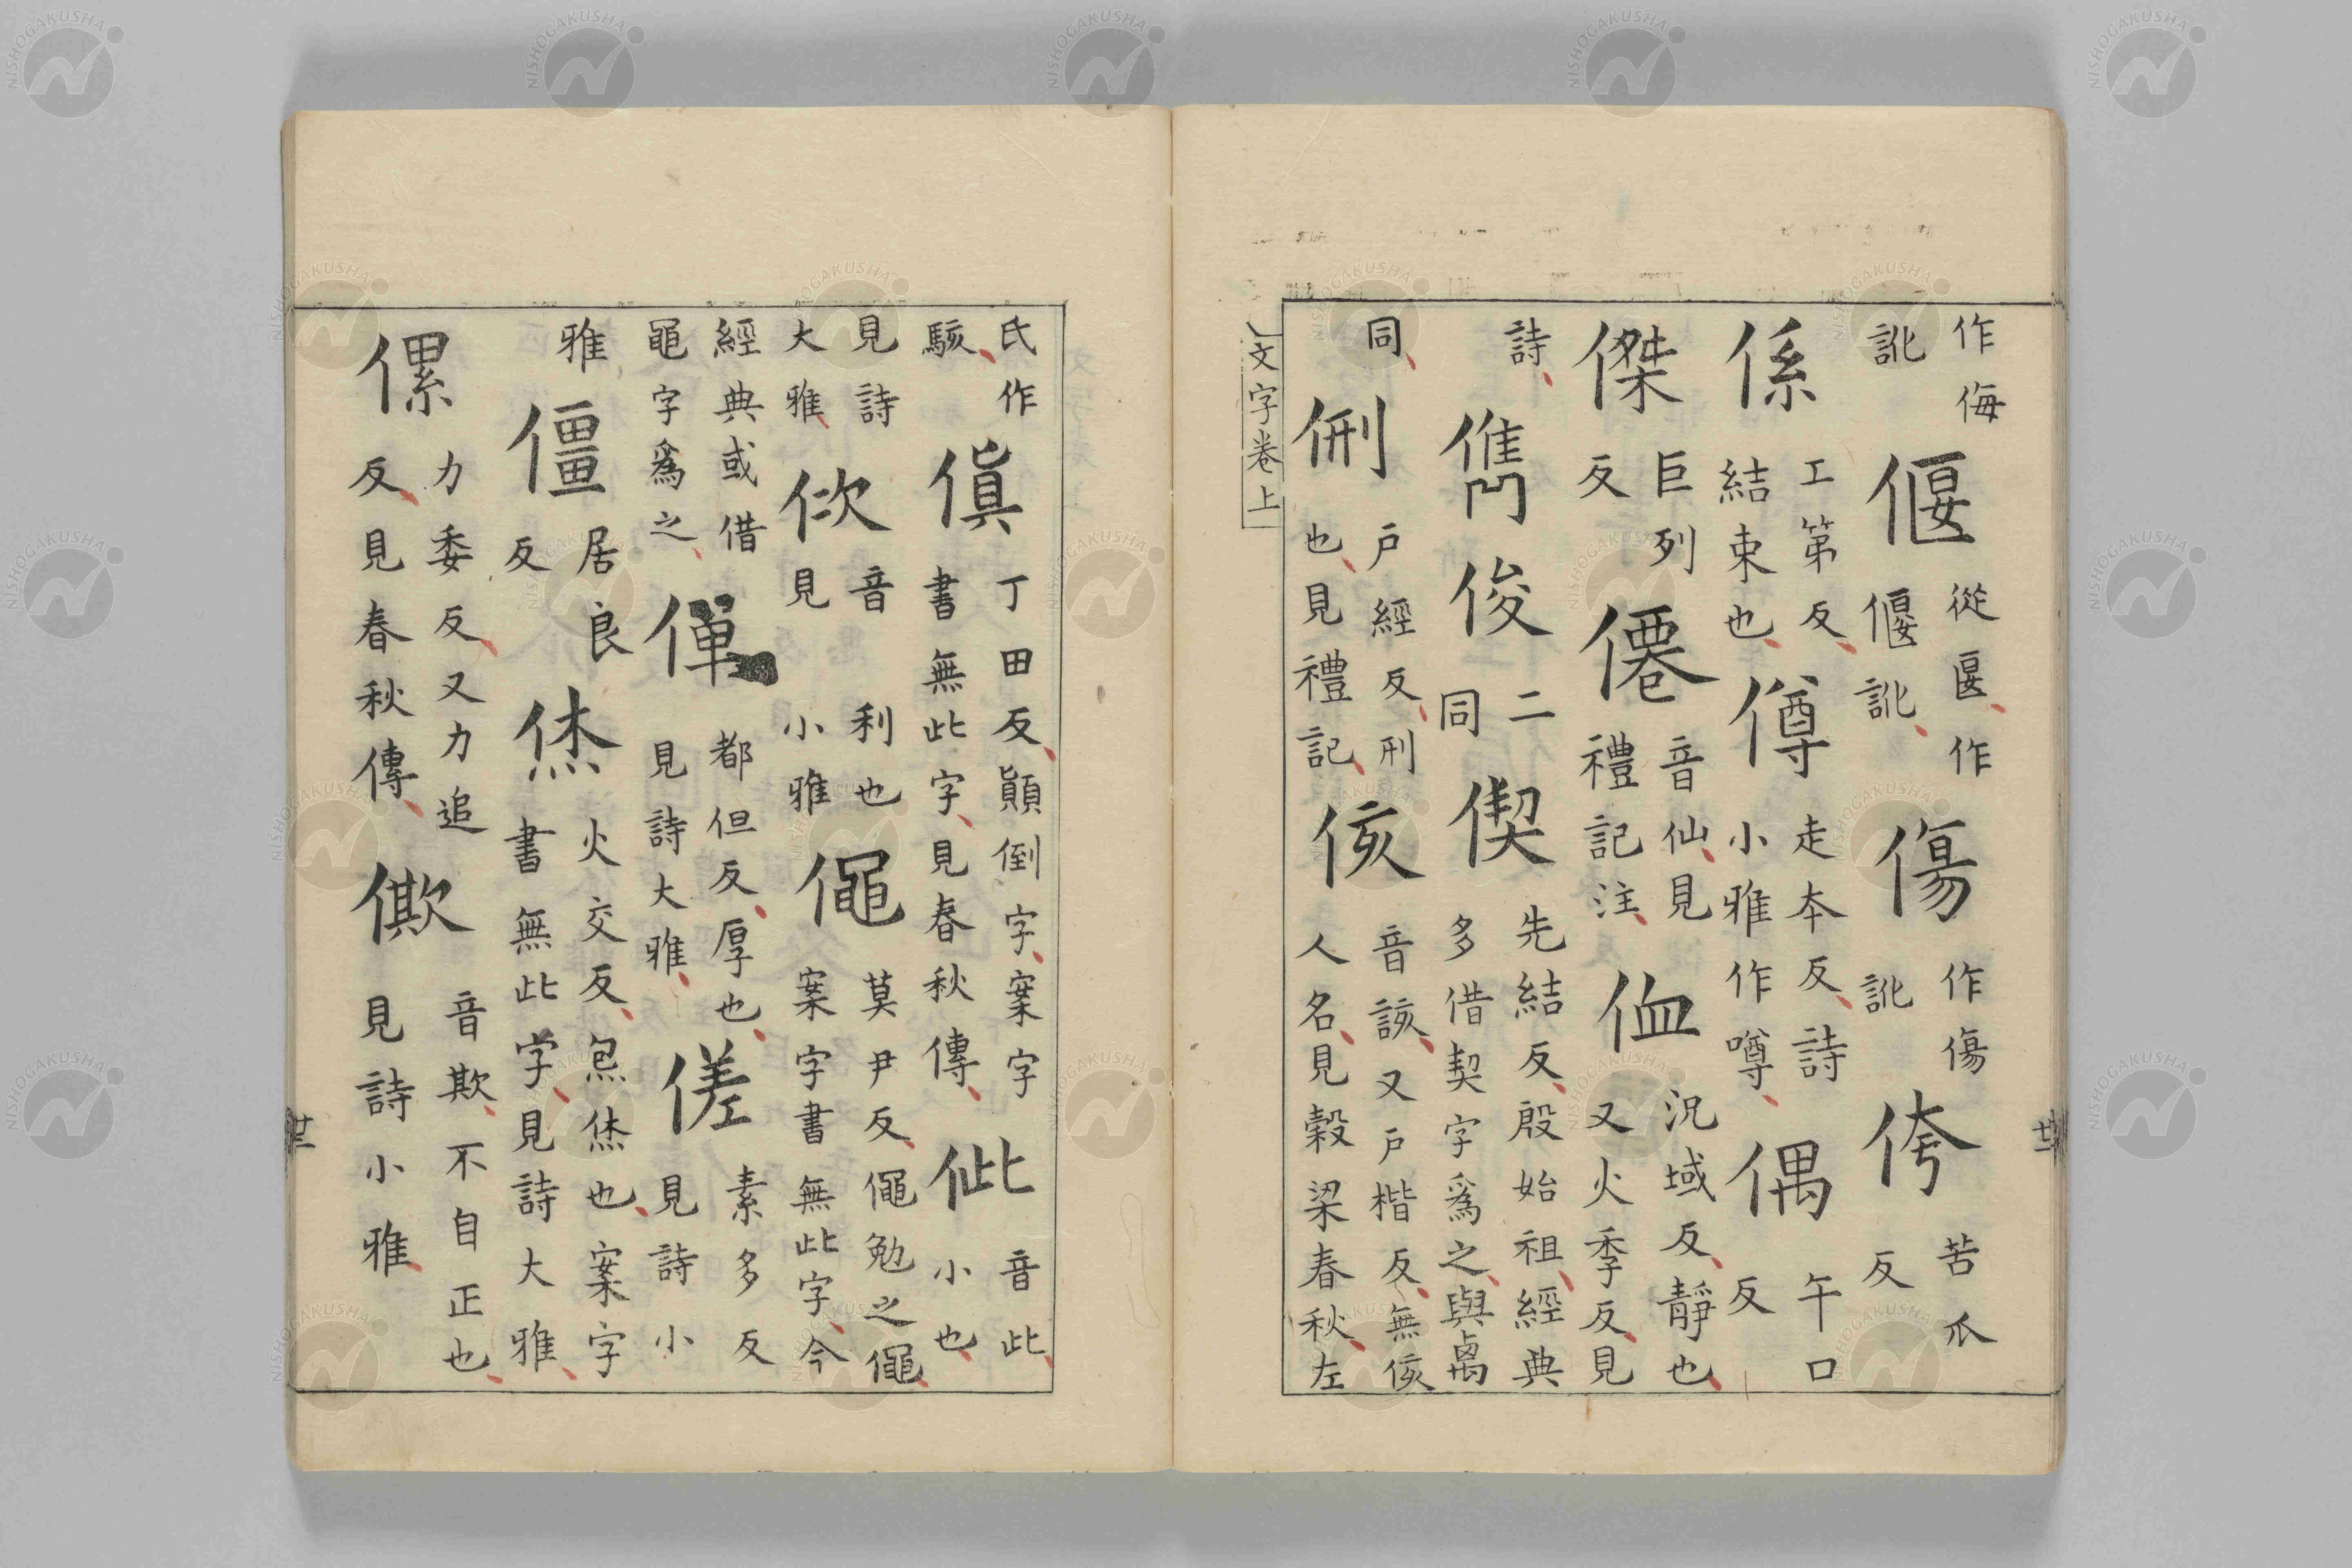 作侮訛偃從匽作偃訛傷作傷訛侉苦爪反
係工第反結束也僔走本反詩小雅作噂偶午口反
傑巨列反僊音仙見禮記注侐況域反靜也又火季反見
詩儁俊二同偰先結反殷始祖經典多借契字爲之與禼
同侀戶經反刑也見禮記侅音該又戶楷反無侅人名見穀梁春秋左
文字卷上
廿二
氏作駭傎丁田反顚倒字案字書無此字見春秋傳佌音此小也
見詩大雅佽音利也見小雅僶莫尹反僶勉之僶案字書無此字今
經典或借黽字爲之僤都但反厚也見詩大雅傞素多反見詩小
雅僵居良反烋火交反炰烋也案字書無此字見詩大雅
傫力委反又力追反見春秋傳僛音欺不自正也見詩小雅
廿二
NISHOGAKUSHA